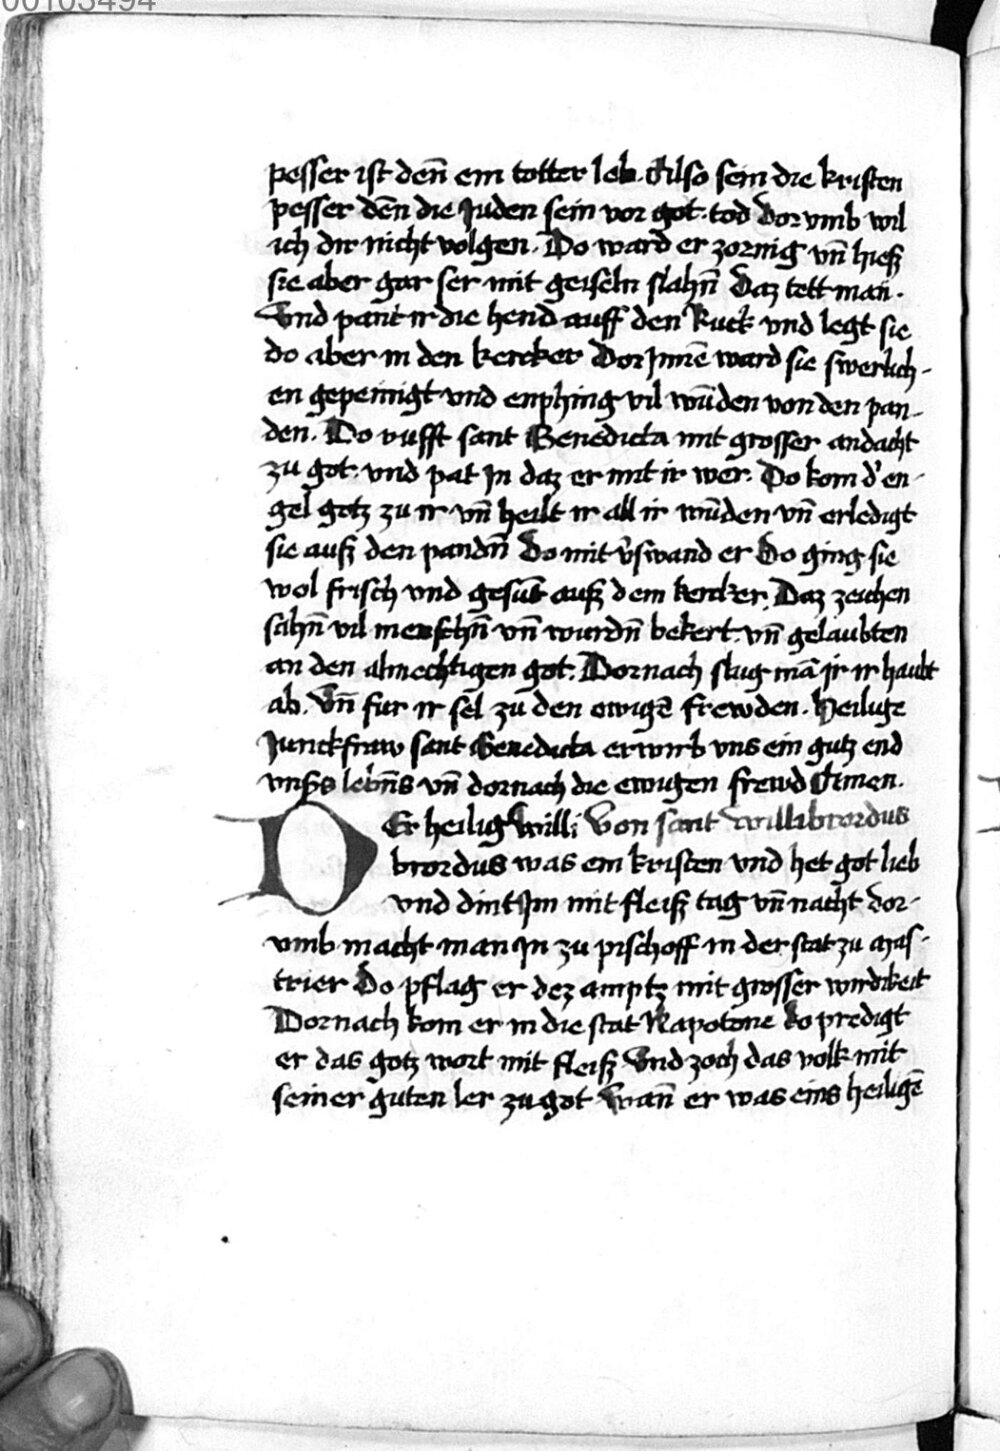 00103494
pesser ist den̄ ein totter leb. Also sein die kristen
pesser den̄ die Juden sein vor got. tod Dor vmb wil
ich dir nicht volgen. Do ward er zornig vn̄ hieß
sie aber gar ser mit geiseln slahn̄ Daz tett man.
Vnd pant ir die hend auff den Ruck vnd legt sie
do aber in den kercker Dor Jnnē ward sie swerlich-
en gepeinigt vnd enphing vil wūden von den pan-
den. Do rufft sant Benedicta mit grosser andacht
zu got. vnd pat Jn daz er mit ir wer. Do kom d' en-
gel gotz zu ir vn̄ heilt ir all ir wūden vn̄ erledigt
sie auß den pandn̄ Do mit v̓swand er Do ging sie
wol frisch vnd gesūt auß dem kercker. Daz zeichen
sahn̄ vil menschn̄ vn̄ wurdn̄ bekert. vn̄ gelaubten
an den almechtigen got. Dornach slug mā jr ir haubt
ab. Vn̄ fur ir sel zu den ewigē frewden. Heilige
Junckfraw sant Benedicta erwirb vns ein gutz end
vnsers lebn̄s vn̄ dornach die ewigen frewd Amen.
DEr heilig willi Von sant willibrordus
brordus was ein kristen vnd het got lieb
vnd dint Jm mit fleiß tag vn̄ nacht dor-
vmb macht man Jn zu pischoff in der stat zu Mas-
trier Do pflag er dez amptz mit grosser wirdikeit
Dornach kom er in die stat Napotone do predigt
er das gotz wort mit fleiß Vnd zoch das volk mit
seiner guten ler zu got Wan̄ er was eins heiligē